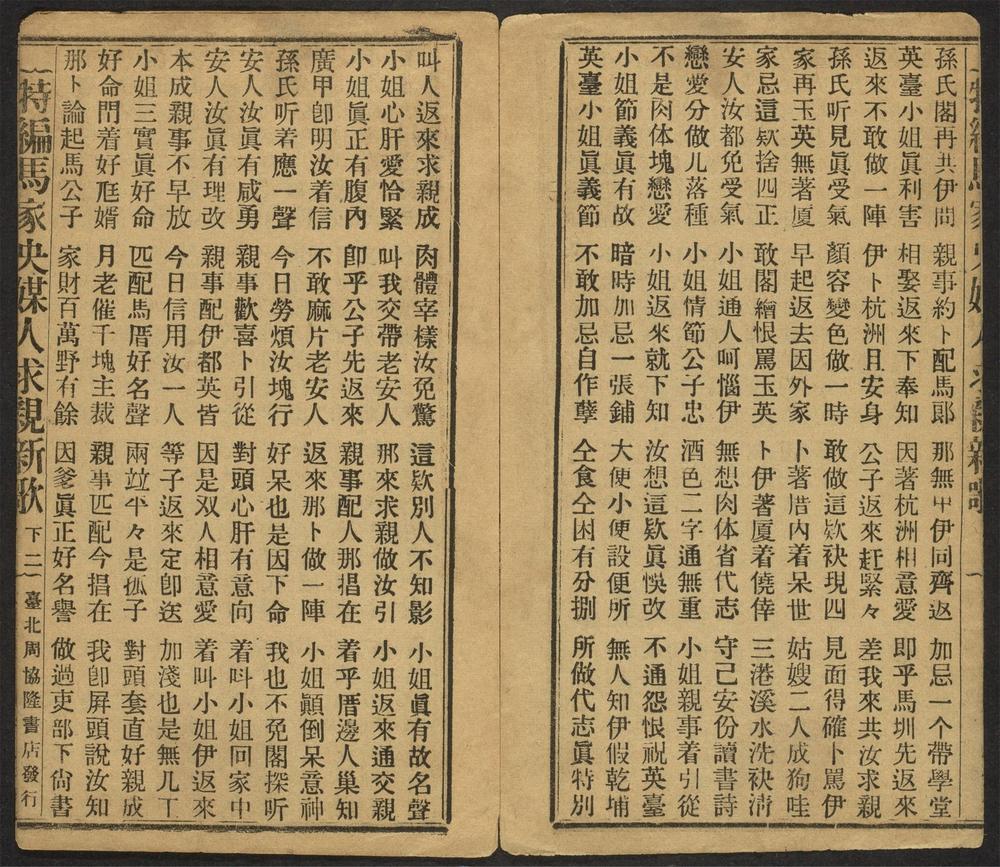 孫氏閣再共伊問 親事約卜配馬郎 那無甲伊同齊返 加忌一个帶學堂
英臺小姐眞利害 相娶返來下奉知 因著杭洲相意愛 即乎馬圳先返來
返來不敢做一陣 伊卜杭洲且安身 公子返來赶緊々 差我來共汝求親
孫氏听見眞受氣 顏容變色做一時 敢做這欵袂現四 見面得確卜罵伊
家再玉英無著厦 早起返去因外家 卜著厝内着呆世 姑嫂二人成狗哇
家忌這欵捨四正 敢閣繪恨罵玉英 卜伊著厦着僥倖 三港溪水洗袂清
安人汝都免受氣 小姐通人呵惱伊 無想肉体省代志 守己安份讀書詩
戀愛分做儿落種 小姐情節公子忠 酒色二字通無重 小姐親事着引從
不是肉体塊戀愛 小姐返來就下知 汝想這欵眞悞改 不通怨恨祝英臺
小姐節義眞有故 暗時加忌一張鋪 大便小便設便所 無人知伊假乾埔
英臺小姐眞義節 不敢加忌自作孽 仝食仝困有分捌 所做代志眞特別
叫人返來求親成 肉體宰樣汝免驚 這欵別人不知影 小姐眞有故名聲
小姐心肝愛恰緊 叫我交帶老安人 那來求親做汝引 小姐返來通交親
小姐眞正有腹内 卽乎公子先返來 親事配人那揚在 着乎厝邊人巢知
廣甲卽明汝着信 不敢麻片老安人 返來那卜做一陣 小姐顚倒呆意神
孫氏听若應一聲 今日勞煩汝塊行 好呆也是因下命 我也不免閣探听
安人汝眞有咸勇 親事歡喜卜引從 對頭心肝有意向 着呌小姐回家中
安人汝眞有理改 親事配伊都英皆 因是双人相意愛 着叫小姐伊返來
本成親事不早放 今日信用汝一人 等子返來定卽送 加淺也是無儿工
小姐三實眞好命 匹配馬厝好名聲 兩竝平々是孤子 對頭套直好親成
好命問着好尫婿 月老催千塊主裁 親事匹配今揚在 我卽屏頭說汝知
那卜論起馬公子 家財百萬野有餘 因爹眞正好名譽 做過吏部下尙書
特編馬家央媒人求親新歌 下二 臺北周協隆書店發行